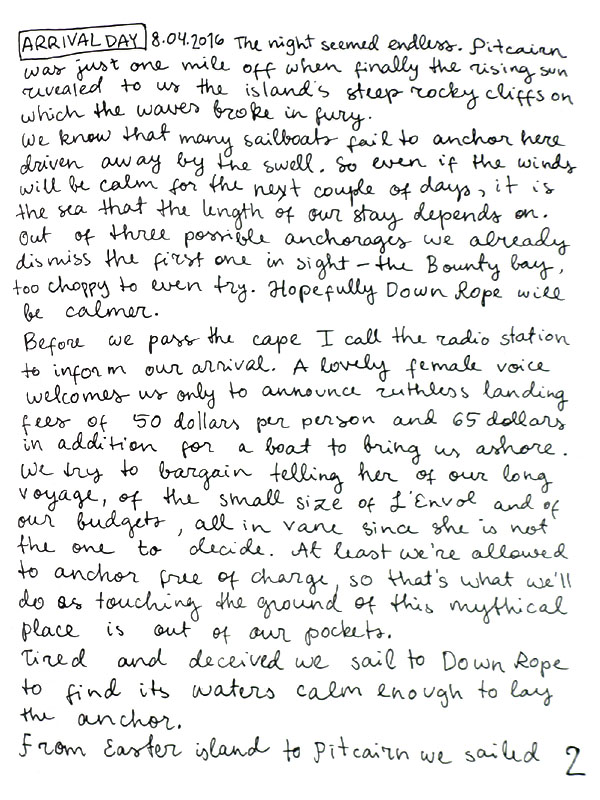 ARRIVAL DAY 8.04.2016 The night seemed endless. Pitcairn
was just one mile off when finally the rising sun
revealed to us the island's steep rocky cliffs on
which the waves broke in fury.
We know that many sailboats fail to anchor here
driven away by the swell. So even if the winds
will be calm for the next couple of days, it is
the sea that the length of our stay depends on.
Out of three possible anchorages we already
dismiss the first one in sight – the Bounty bay,
too choppy to even try. Hopefully Down Rope will
be calmer.
Before we pass the cape I call the radio station
to inform our arrival. A lovely female voice
welcomes us only to announce ruthless landing
fees of 50 dollars per person and 65 dollars
in addition for a boat to bring us ashore.
We try to bargain telling her of our long
voyage, of the small size of L'Envol and of
our budgets, all in vane since she is not
the one to decide. At least we're allowed
to anchor free of charge, so that's what we'll
do as touching the ground of this mythical
place is out of our pockets.
Tired and deceived we sail to Down Rope
to find its waters calm enough to lay
the anchor.
From Easter island to Pitcairn we sailed 2